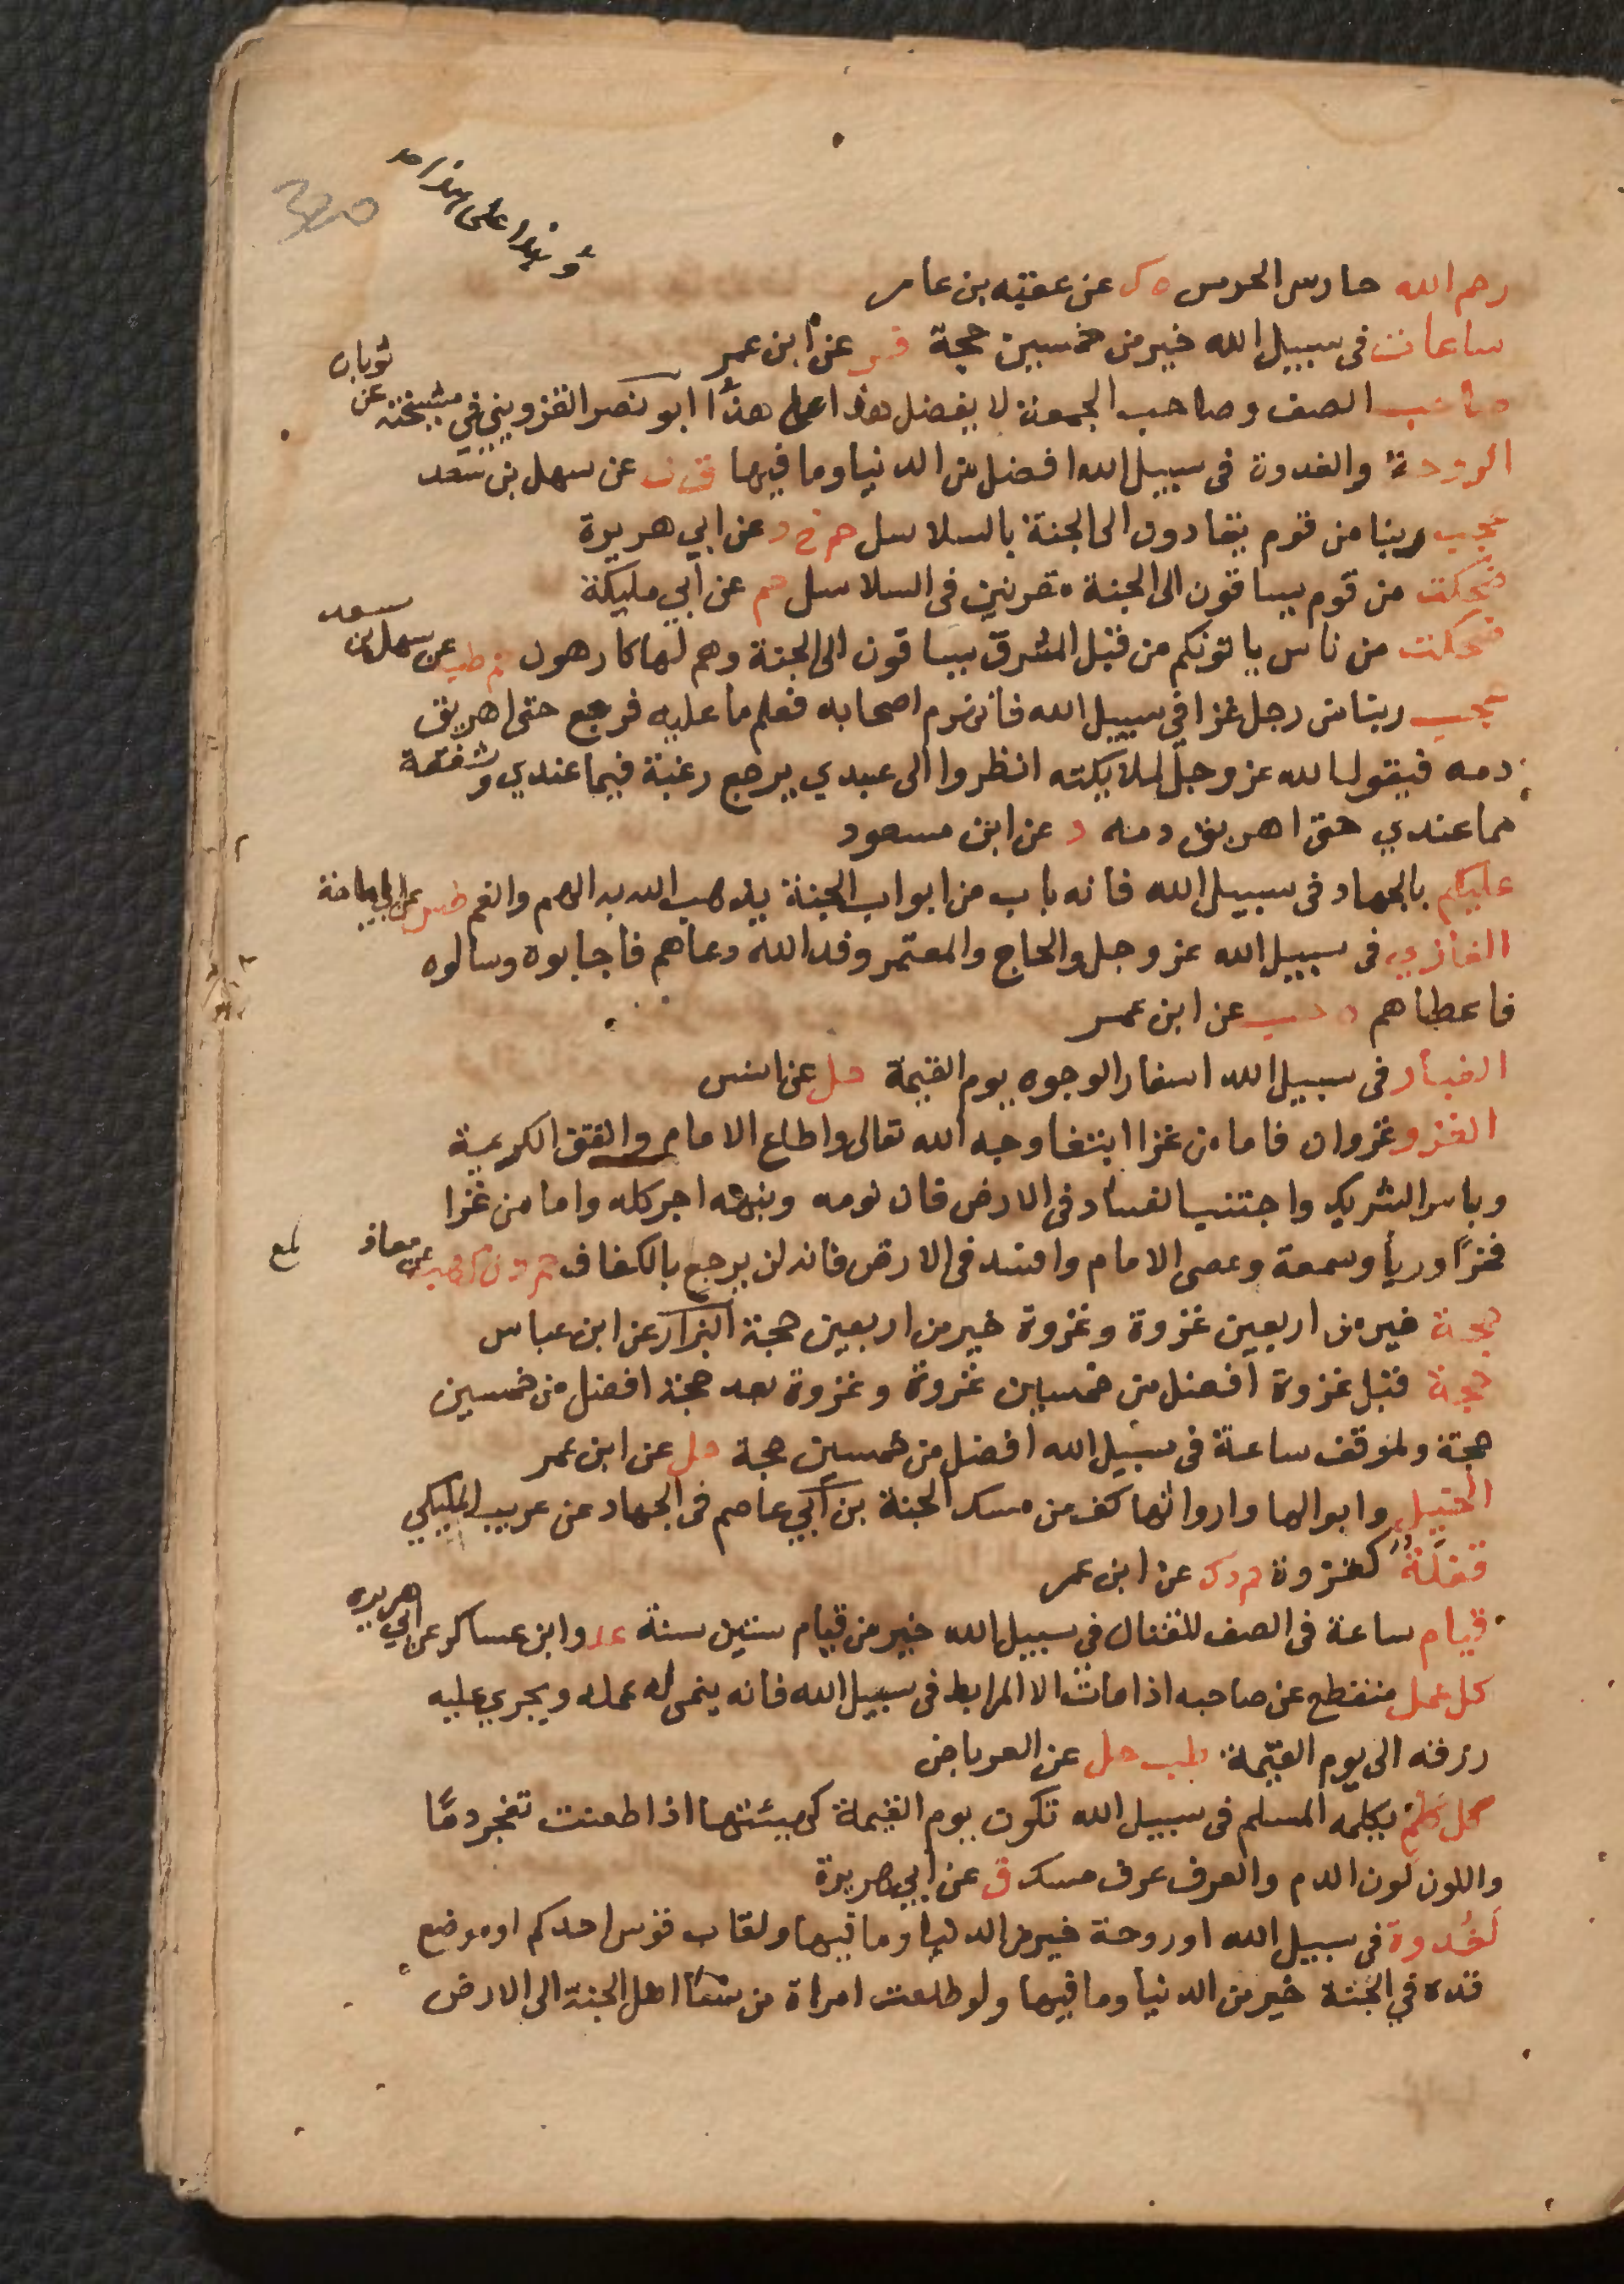 320
رحم الله حارس الحرس ه ك عن عقبة بن عامر
ساعات في سبيل الله خير من خمسين حجة فر عن ابن عمر
صاحب الصف وصاحب الجمعة لا يفضل هذا على هذا ابو نصر القزويني في مشيخته عن ثوبان
الروحة والغدوة في سبيل الله افضل من الدنيا وما فيها ق ن عن سهل بن سعد
عجب ربنا من قوم يقادون الى الجنة بالسلاسل حم خ د عن ابي هريرة
ضحكت من قوم يساقون الى الجنة مقرنين في السلاسل حم عن ابي مليكة
ضحكت من ناس ياتونكم من قبل المشرق يساقون الى الجنة وهم لها كارهون حم طب عن سهل بن سعد
عجب ربنا من رجل غزا في سبيل الله فانهزم اصحابه فعلم ما عليه فرجع حتى اهريق
دمه فيقول الله عز وجل لملايكته انظروا الى عبدي يرجع رغبة فيما عندي وشفقة
مما عندي حتى اهريق دمه د عن ابن مسعود
عليكم بالجهاد في سبيل الله فانه باب من ابواب الجنة يذهب الله به الهم والغم طس عن ابي امامة
الغازي في سبيل الله عز وجل والحاج والمعتمر وفد الله دعاهم فاجابوه وسالوه
فاعطاهم ه حب عن ابن عمر
الغبار في سبيل الله اسفار الوجوه يوم القيمة حل عن انس
الغزو غزوان فاما من غزا ابتغا وجه الله تعالى واطاع الامام وانفق الكريمة
وياسر الشريك واجتنب الفساد في الارض فان نومه ونبهه اجر كله واما من غزا
فخرًا ورياً وسمعة وعصى الامام وافسد في الارض فانه لن يرجع بالكفاف حم د ن ك هب عن معاذ
حجة خير من اربعين غزوة وغزوة خير من اربعين حجة البزار عن ابن عباس
حجة قبل غزوة افضل من خمسين غزوة وغزوة بعد حجة افضل من خمسين
حجة ولموقف ساعة في سبيل الله افضل من خمسين حجة حل عن ابن عمر
الخيل وابوالها واروائها كف من مسك الجنة بن ابي عاصم في الجهاد عن عريب المليكي
قفلة كغزوة حم د ك عن ابن عمر
قيام ساعة في الصف للقتال في سبيل الله خير من قيام ستين سنة عد وابن عساكر عن ابي هريرة
كل عمل منقطع عن صاحبه اذا مات الا المرابط في سبيل الله فانه ينمى له عمله ويجري عليه
رزقه الى يوم القيمة طب حل عن العرباض
كل كلم يكلمه المسلم في سبيل الله تكون يوم القيمة كهيئتها اذا طعنت تفجر دمًا
واللون لون الدم والعرف عرف مسك ق عن ابي هريرة
لغدوة في سبيل الله او روحة خير من الدنيا وما فيها ولقاب قوس احدكم او موضع
قده في الجنة خير من الدنيا وما فيها ولو طلعت امراة من نسا اهل الجنة الى الارض